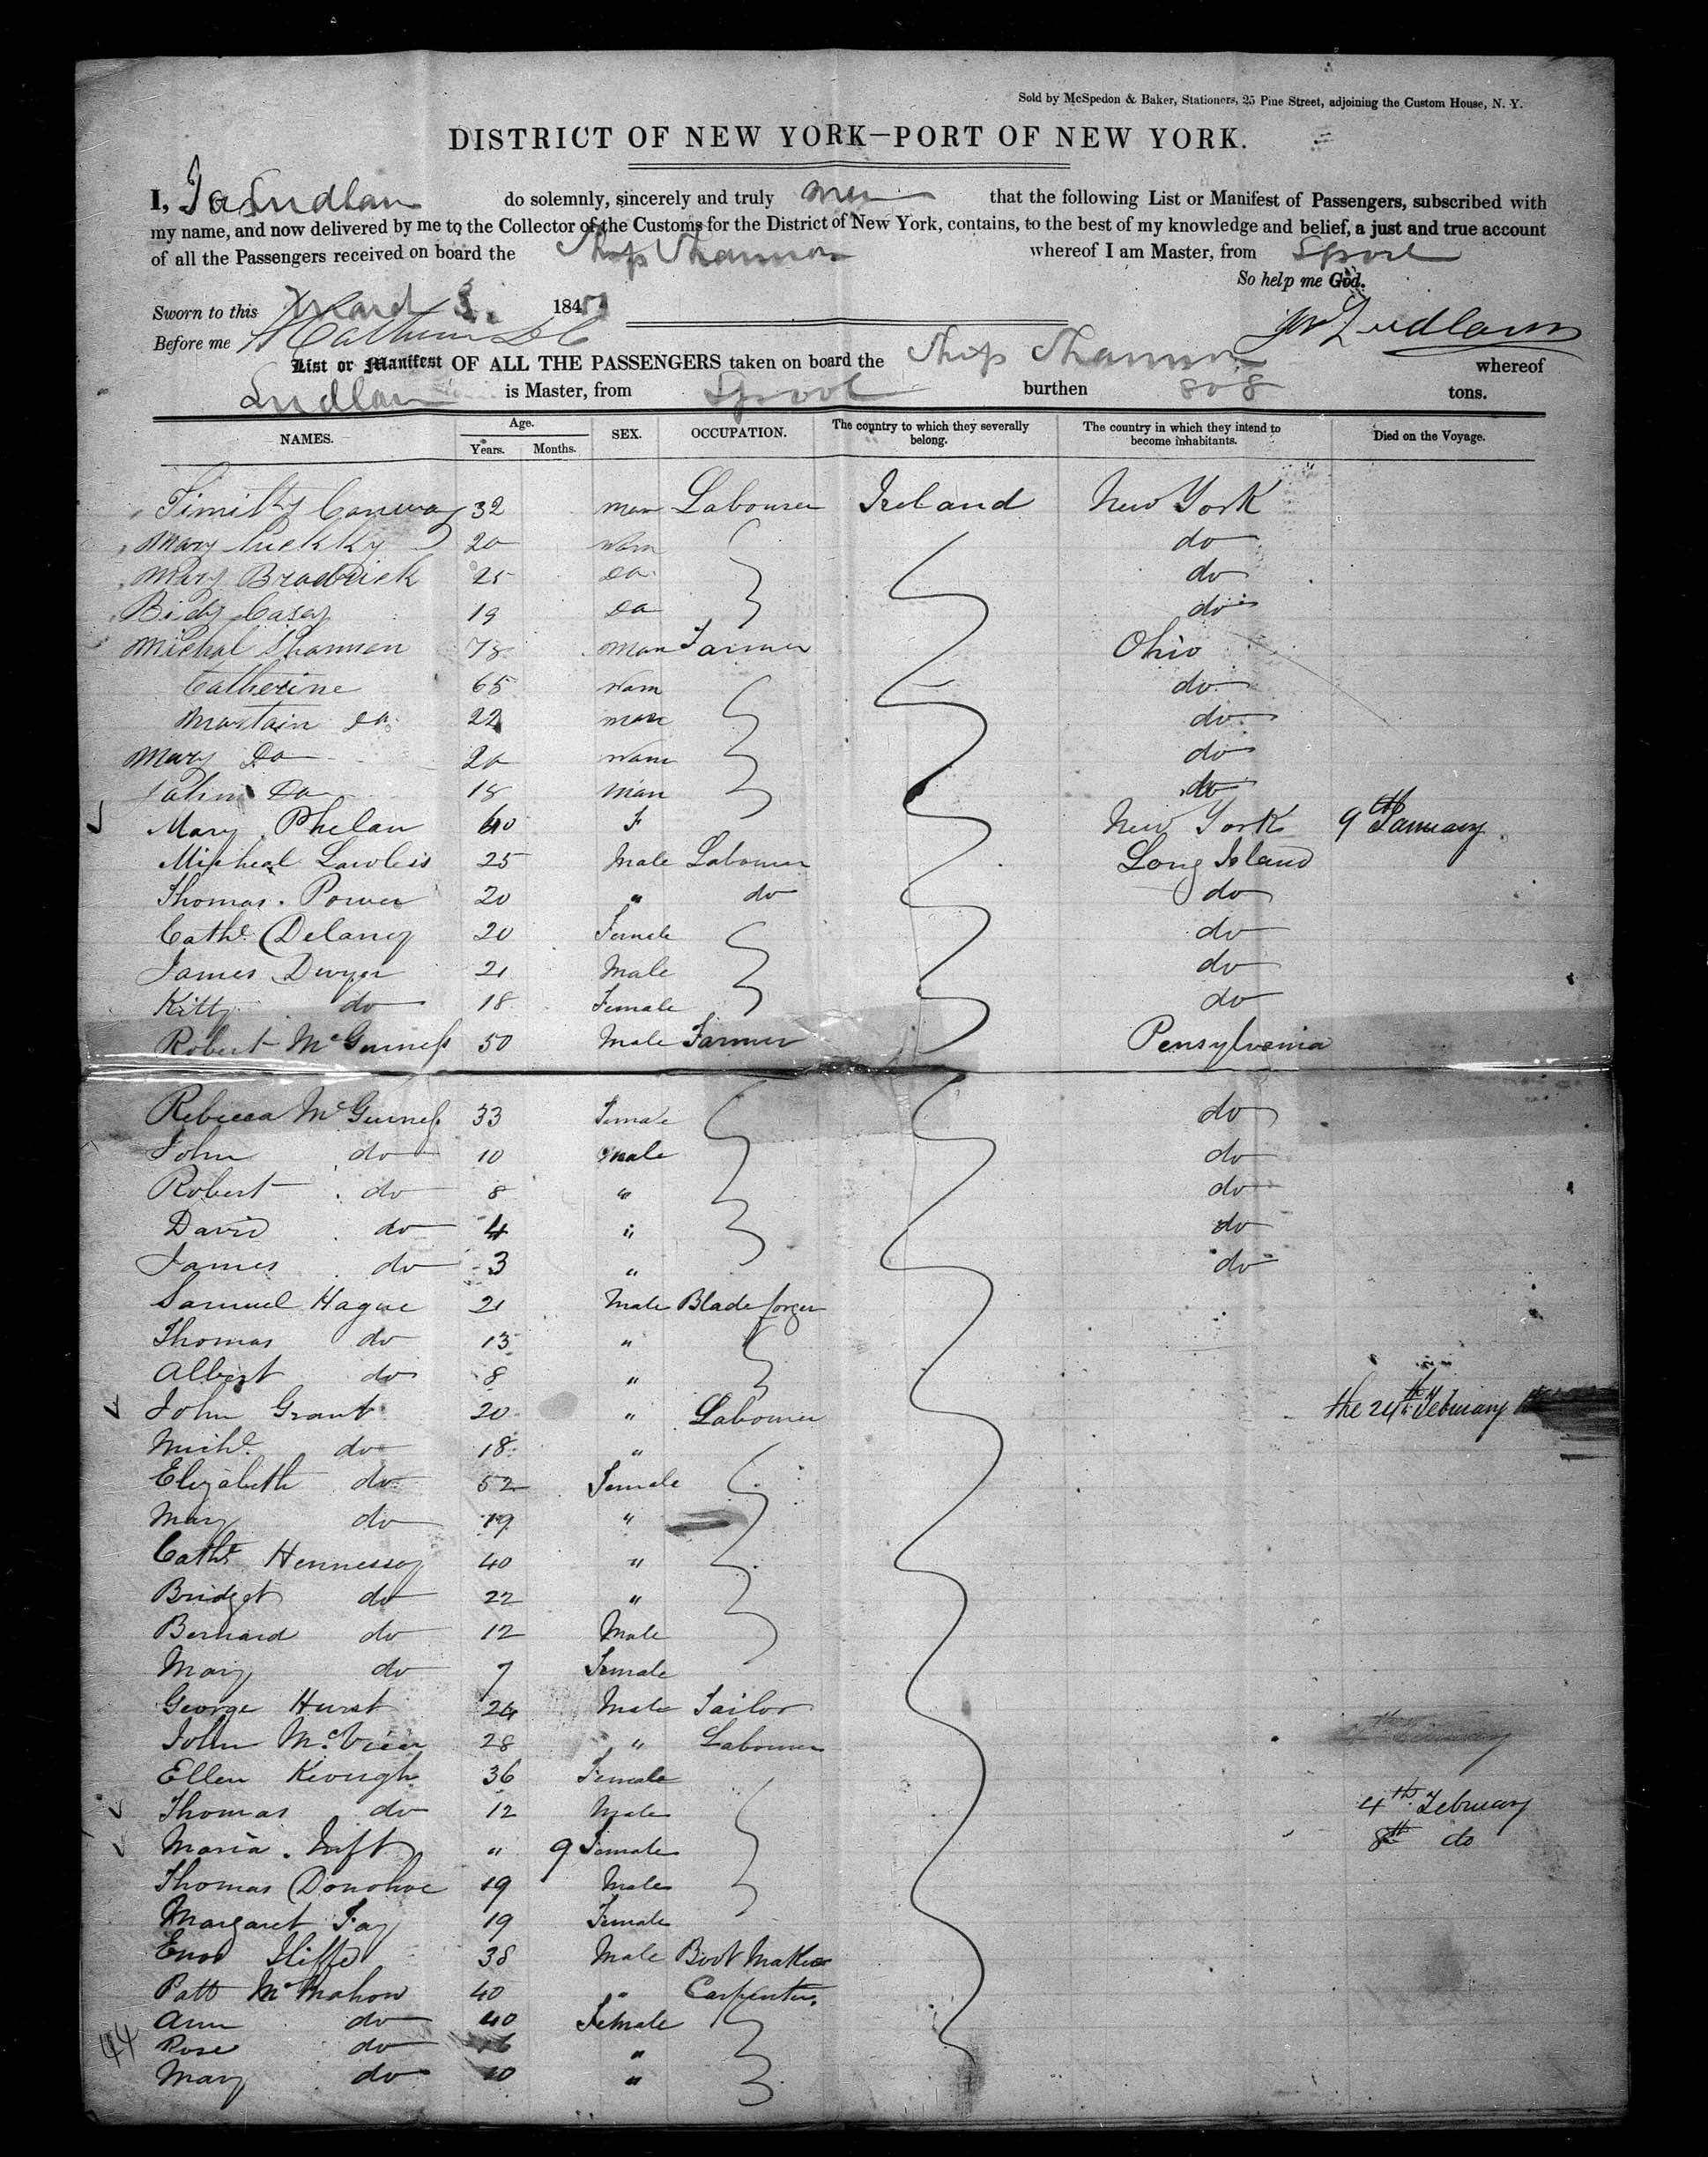 Sold by McSpedon & Baker, Stationers, 25 Pine Street, adjoining the Custom House, N. Y.
DISTRICT OF NEW YORK—PORT OF NEW YORK.
I, Ludlam do solemnly, sincerely and truly that the following List or Manifest of Passengers, subscribed with
my name, and now delivered by me to the Collector of the Customs for the District of New York, contains, to the best of my knowledge and belief, a just and true account
of all the Passengers received on board the Ship Shannon whereof I am Master, from Lpool
So help me God.
Sworn to this March 3. 184
Before me Ludlam
List or Manifest OF ALL THE PASSENGERS taken on board the Ship Shannon whereof
Ludlam is Master, from Lpool burthen 808 tons.
NAMES. Age. Years. Months. SEX. OCCUPATION. The country to which they severally belong. The country in which they intend to become inhabitants. Died on the Voyage.
Timilty Conway 32 man Labourer Ireland New York
Mary 20 wom do
Mary Bradrick 25 Do do
Bidy Casey 19 Do do
Michal Shannon 78 man Farmer Ohio
Catherine 65 wom do
Martain Do 22 man do
Mary Do 20 wom do
Do 18 man do
Mary Phelan 40 F New York 9th January
Micheal Lawless 25 Male Labourer Long Island
Thomas Power 20 " do do
Cathe Delaney 20 Female do
James Dwyer 21 Male do
Kitty do 18 Female do
Robert McGuiness 50 Male Farmer Pensylvania
Rebecca McGuiness 33 Female do
John do 10 male do
Robert do 8 " do
David do 4 " do
James do 3 " do
Samuel Hague 21 Male Blade forger
Thomas do 13 "
Albert do 8 "
John Grant 20 " Labourer the 24th February
Michl do 18 "
Elizabeth do 52 Female
Mary do 19 "
Cathe Hennessey 40 "
Bridget do 22 "
Bernard do 12 Male
Mary do 7 Female
George Hurst 24 Male Tailor
John 28 " Labourer
Ellen Keough 36 Female
Thomas do 12 Male 4th February
Maria " 9 Female 8th do
Thomas Donohoe 19 Male
Margaret Fay 19 Female
Enos Iliffe 38 Male Boot Maker
Patt McMahon 40 " Carpenter
Ann do 40 Female
Rose do 16 "
Mary do 10 "
44